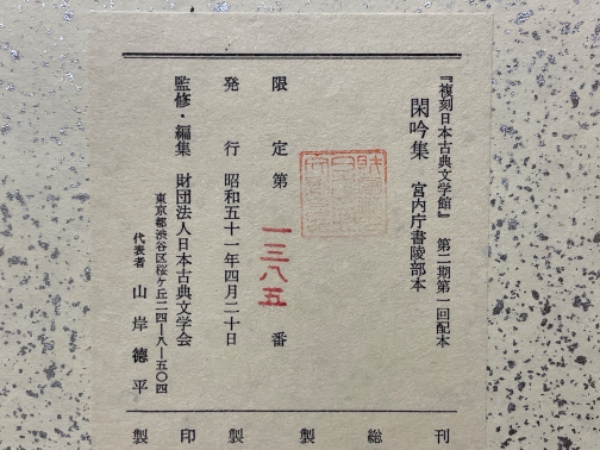 『複刻日本古典文学館』 第二期第一回配本
閑吟集 宮内庁書陵部本
限定第 一三八五 番
発行 昭和五十一年四月二十日
監修・編集 財団法人日本古典文学会
東京都渋谷区桜ケ丘二四―八―五〇四
代表者 山岸徳平
刊
総
製
製
印
製